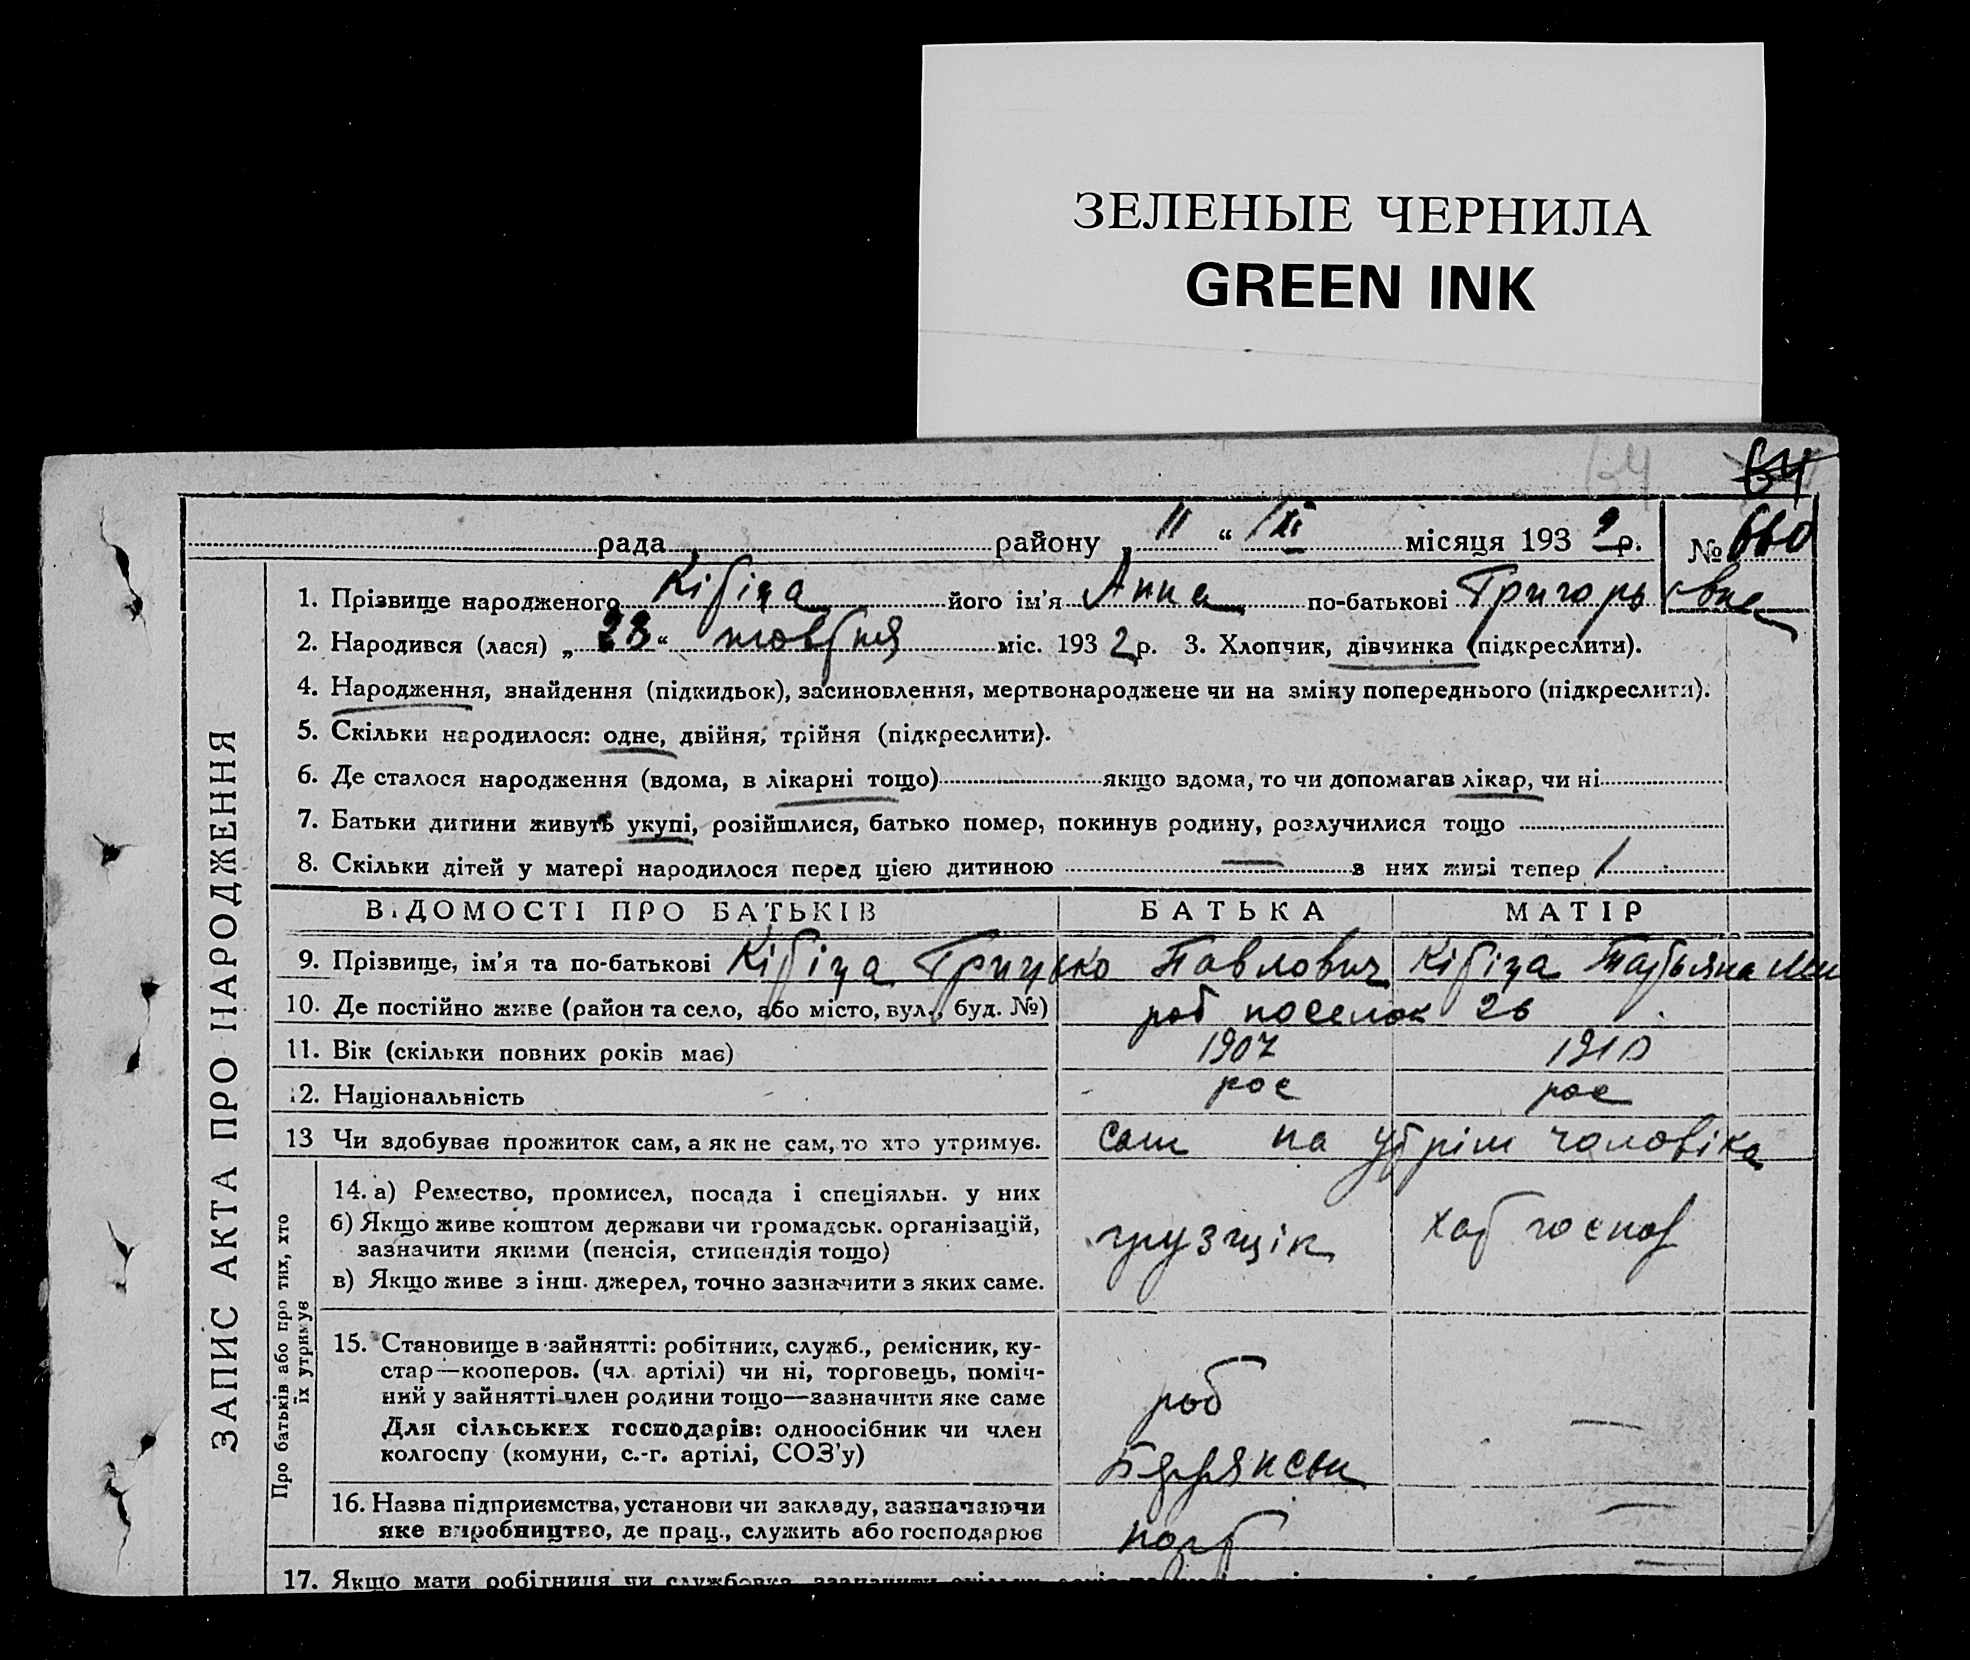 ЗЕЛЕНЫЕ ЧЕРНИЛА
GREEN INK
64
64
рада района „ 11 “ XI місяця 193 2 р. № 660
ЗАПИС АКТА ПРО НАРОДЖЕННЯ
1. Прізвище народженого Кібіца його ім'я Анна по-батькові Григорьевна
2. Народився (лася) „ 28 “ жовтня міс. 193 2 р. 3. Хлопчик, дівчинка (підкреслити).
4. Народження, знайдення (підкидьок), засиновлення, мертвонароджене чи на зміну попереднього (підкреслити).
5. Скільки народилося: одне, двійня, трійня (підкреслити).
6. Де сталося народження (вдома, в лікарні тощо) якщо вдома, то чи допомагав лікар, чи ні
7. Батьки дитини живуть укупі, розійшлися, батько помер, покинув родину, розлучилися тощо
8. Скільки дітей у матері народилося перед цією дитиною — з них живі тепер 1
ВІДОМОСТІ ПРО БАТЬКІВ БАТЬКА МАТІР
9. Прізвище, ім'я та по-батькові Кібіца Грицько Павлович Кібіца Татьяна Ми
10. Де постійно живе (район та село, або місто, вул., буд. №) роб поселок 26
11. Вік (скільки повних років має) 1907 1910
12. Національність рос рос
13 Чи здобуває прожиток сам, а як не сам, то хто утримує. сам на утрім чоловіка
Про батьків або про тих, хто їх утримує
14. а) Ремество, промисел, посада і спеціяльн. у них
б) Якщо живе коштом держави чи громадськ. організацій,
зазначити якими (пенсія, стипендія тощо)
грузщік хат господ
в) Якщо живе з інш. джерел, точно зазначити з яких саме.
15. Становище в зайнятті: робітник, служб., ремісник, ку-
стар—кооперов. (чл. артілі) чи ні, торговець, поміч-
ний у зайнятті член родини тощо—зазначити яке саме
роб —
Для сільських господарів: одноосібник чи член
колгоспу (комуни, с.-г. артілі, СОЗ'у)
16. Назва підприємства, установи чи закладу, зазначаючи
яке виробництво, де прац., служить або господарює
порт —
17. Якщо мати робітниця чи службовка, зазначити